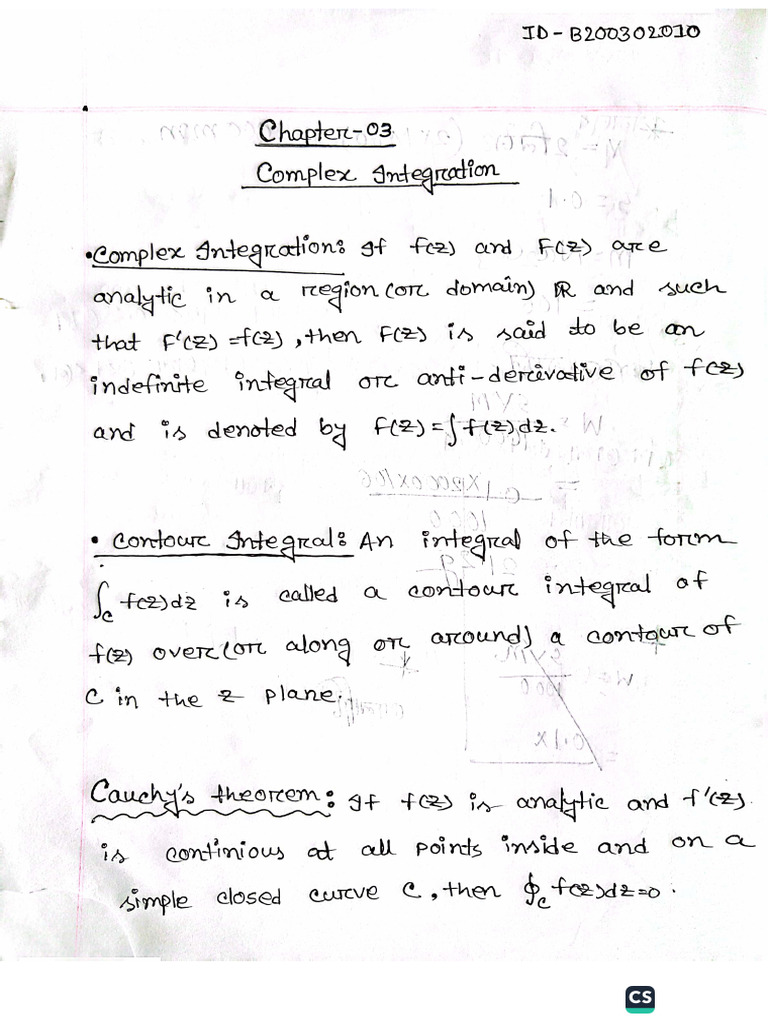 ID-B200302010
Chapter-03
Complex Integration
•Complex Integration: If f(z) and F(z) are
analytic in a region(or domain) R and such
that F'(z)=f(z), then F(z) is said to be an
indefinite integral or anti-derivative of f(z)
and is denoted by F(z)=∫f(z)dz.
• Contour Integral: An integral of the form
∫_C f(z)dz is called a contour integral of
f(z) over(or along or around) a contour of
C in the z plane.
Cauchy's theorem: If f(z) is analytic and f'(z)
is continious at all points inside and on a
simple closed curve C, then ∮_C f(z)dz=0.
CS